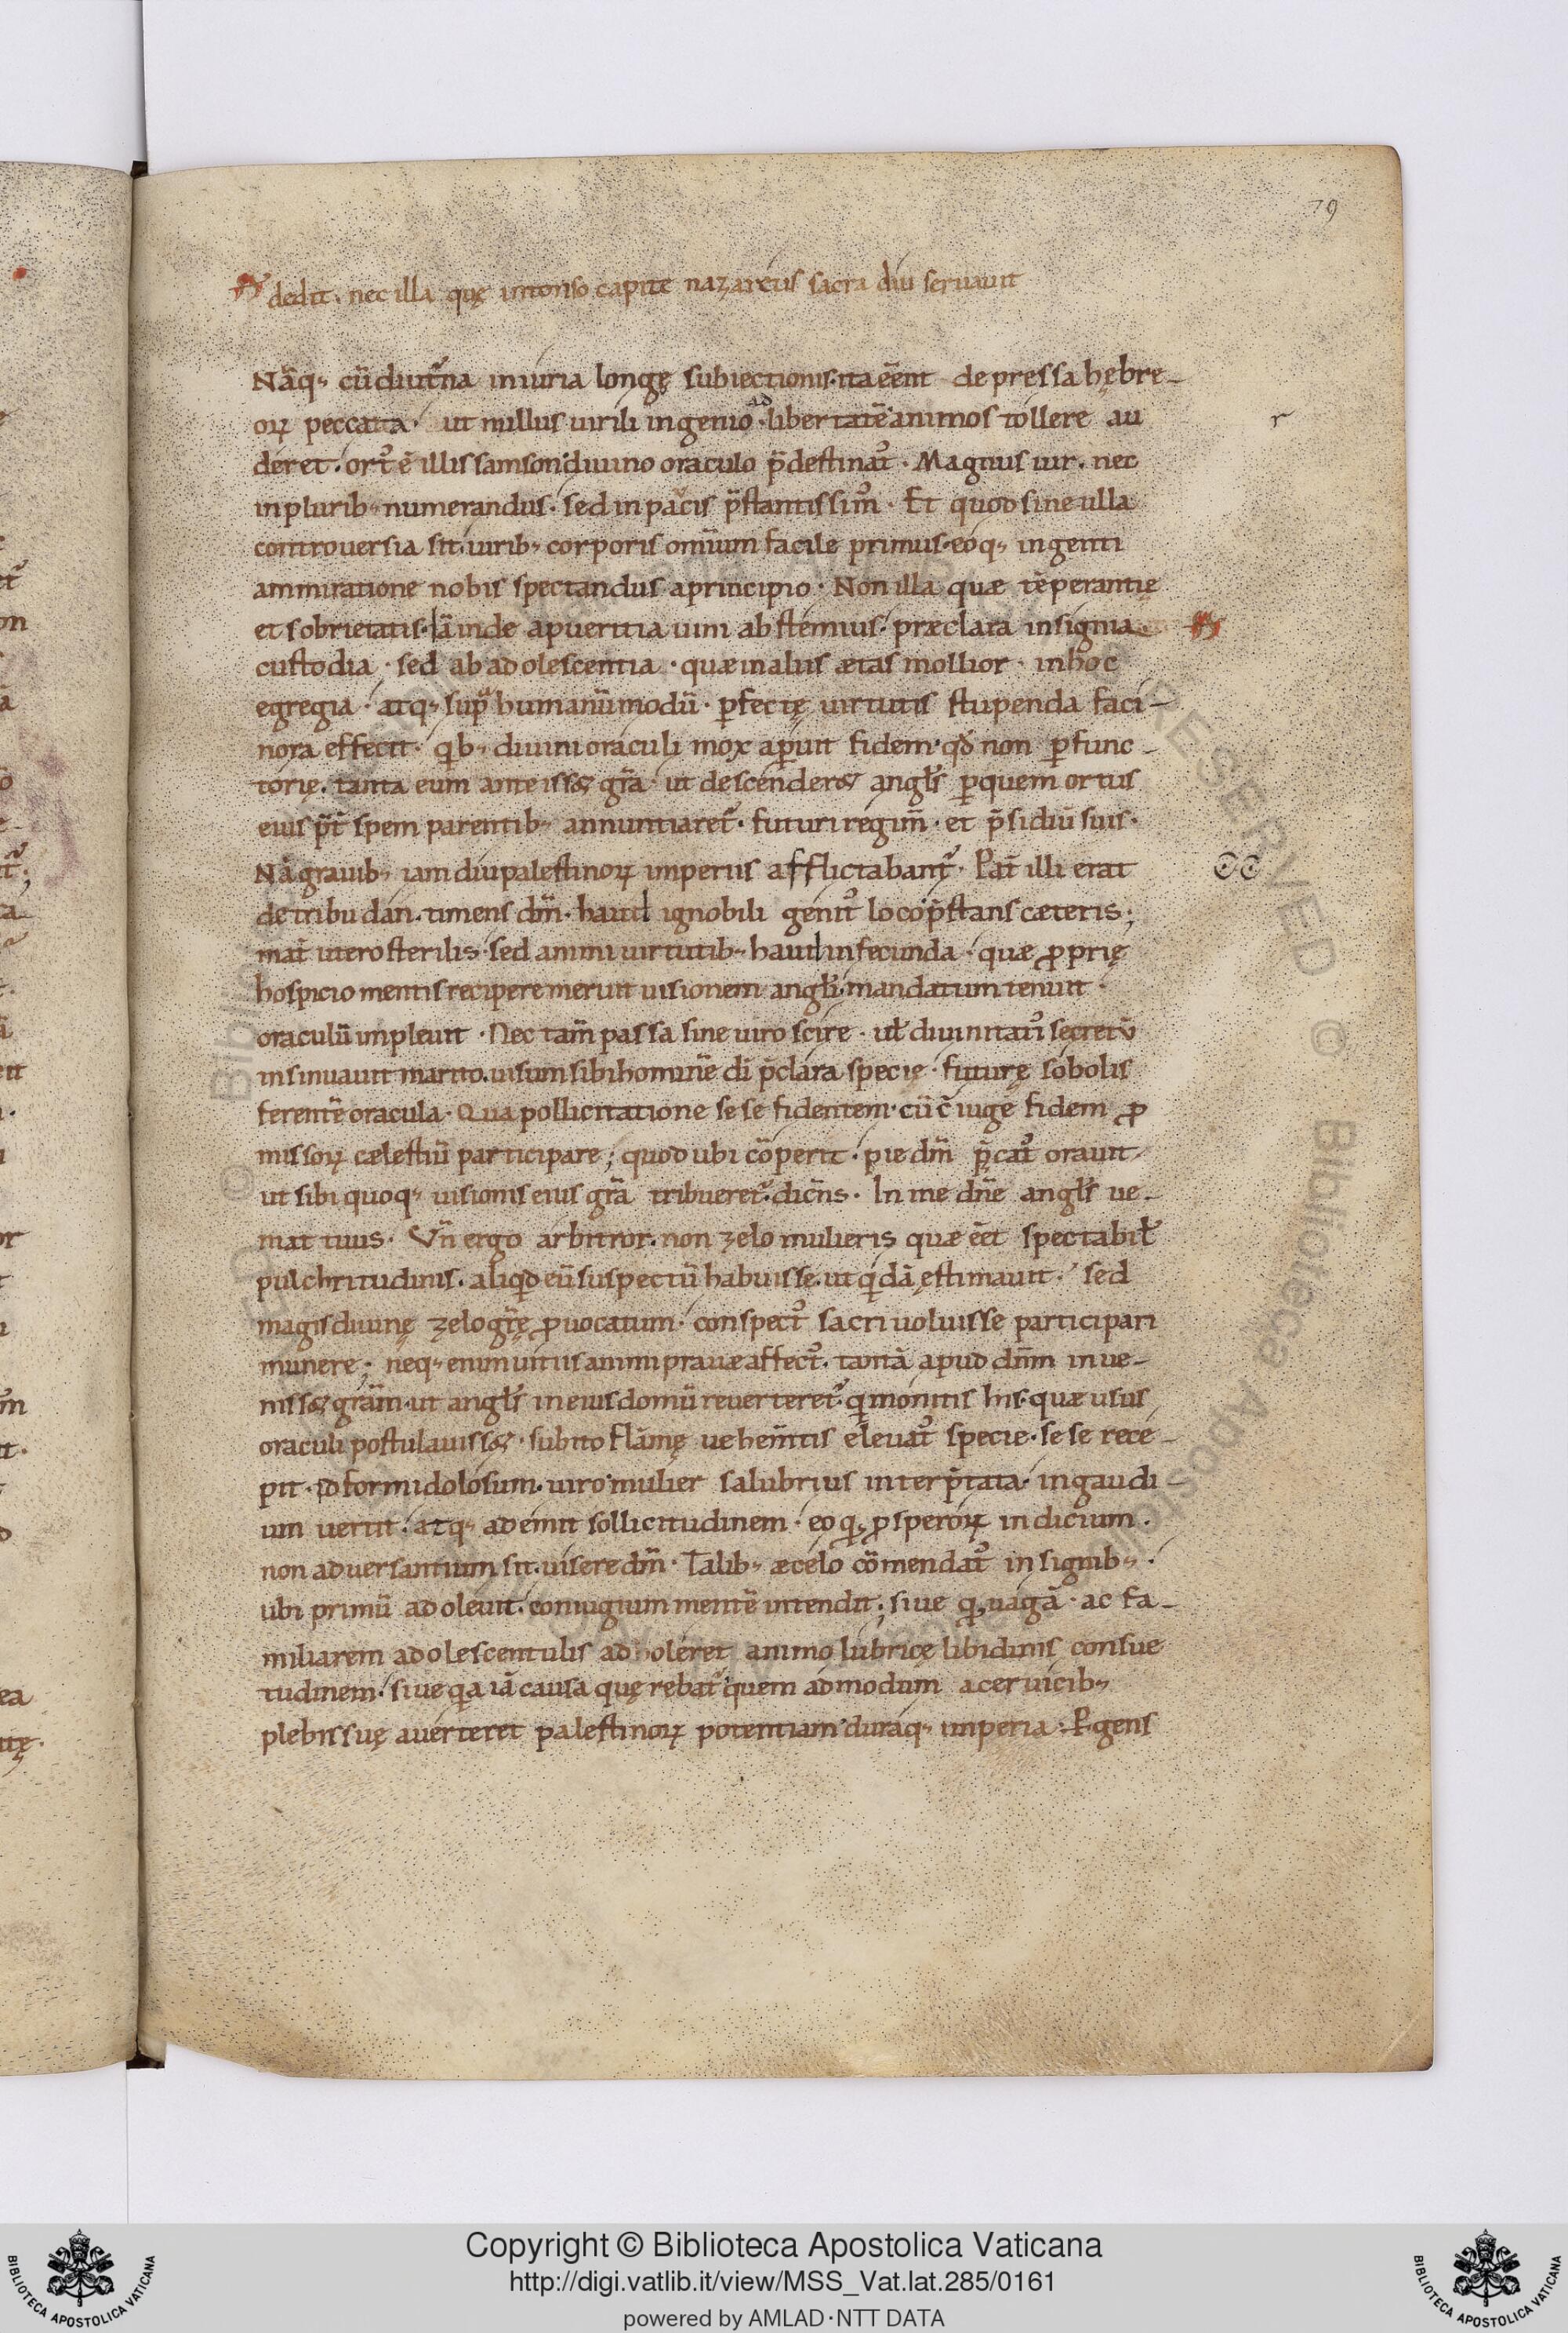 79
dedit. nec illa quę intonso capite nazareus sacra diu seruauit
Nāq; cū diut̄na iniuria longę subiectionis. ita eēnt depressa hębre-
oꝝ peccata. ut nullus uirili ingenio ad libertatē animos tollere au
deret. ortꝰ ē illis samson diuino oraculo p̄destinatꝰ. Magnus uir. nec
in plurib; numerandus. sed in paucis p̄stantissimꝰ. Et quod sine ulla
controuersia sit. uirib; corporis omīum facile primus. eoq; ingenti
ammiratione nobis spectandus a principio. Non illa quæ tēperantię
et sobrietatis. iā inde a pueritia uini abstemius. præclara insignia
custodia. sed ab adolescentia. quæ in aliis ætas mollior. in hoc
egregia. atq; sup̄ humanū modū. ꝑfectę uirtutis stupenda faci-
nora effecit. qib; diuini oraculi mox aperuit fidem. qd̄ non ꝑfunc-
torię. tanta eum anteisset gr̄a. ut descenderet angl̄s ꝑ quem ortus
eius p̄t̄ spem parentib; annuntiaret᷑. futuri regim̄. et p̄sidiū suis.
Nā grauib; iam diu palestinoꝝ imperiis afflictabant᷑. Pat̄ illi erat
de tribu dan. timens dm̄. haud ignobili genitꝰ loco. p̄stans cæteris;
mat̄ utero sterilis. sed animi uirtutib; haud infecunda. quæ ꝓprię
hospicio mentis recipere meruit uisionem angl̄i. mandatum tenuit.
oraculū impleuit. Nec tam̄ passa sine uiro scire. ul̄ diuinitatꝰ secretū
insinuauit marito. uisum sibi hominē di p̄clara specię. futurę sobolis
ferentē oracula. Qua pollicitatione sese fidentem. cū c̄iuge fidem ꝓ
missoꝝ cælestiū participare; quod ubi cōperit. pie dm̄ p̄catꝰ orauit
ut sibi quoq; uisionis eius gr̄a tribueret᷑. dicn̄s. In me dn̄e angl̄s ue-
niat tuus. Vn̄ ergo arbitror. non zelo mulieris quæ eēt spectabil̄
pulchritudinis. aliqd eū suspectū habuisse. ut qidā ęstimauit. sed
magis diuinę zelo gr̄ę ꝓuocatum. conspectꝰ sacri uoluisse participari
munere; neq; enim uitiis animi prauæ affectꝰ. tantā apud dn̄m inue-
nisset gr̄am. ut angl̄s in eius domū reuerteret᷑. qi monitis his. quæ usus
oraculi postulauisset. subito flāmę uehem̄tis eleuatꝰ specie. sese rece-
pit. id formidolosum. uiro mulier salubrius interp̄tata. in gaudi-
um uertit. atq; ademit sollicitudinem. eo qd ꝓsperoꝝ indicium.
non aduersantium sit. uisere dm̄. Talib; æ celo cōmendatꝰ insignib;.
ubi primū adoleuit. coniugium mentē intendit; siue qd uagā. ac fa-
miliarem adolescentulis adholeret animo lubricę libidinis consue
tudinem. siue qa iā causa quęrebat᷑. quem admodum a ceruicib;
plebis suę auerteret palestinoꝝ potentiam. duraq; imperia. Ꝑgens
Copyright © Biblioteca Apostolica Vaticana
http://digi.vatlib.it/view/MSS_Vat.lat.285/0161
powered by AMLAD·NTT DATA
BIBLIOTECA APOSTOLICA VATICANA
BIBLIOTECA APOSTOLICA VATICANA